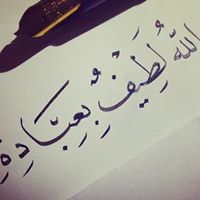 الله لَطِيفٌ بِعِبَادِهِ